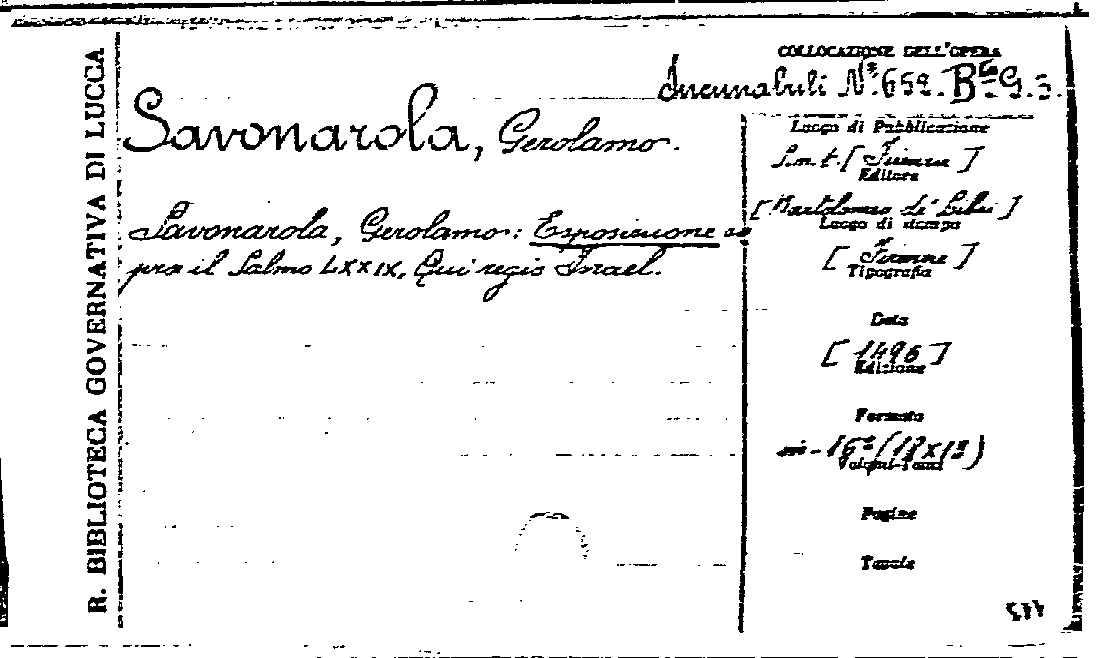 R. BIBLIOTECA GOVERNATIVA DI LUCCA
COLLOCAZIONE DELL'OPERA
Incunabuli N.º 652. Bª G. 3.
Savonarola, Gerolamo.
Savonarola, Gerolamo: Esposizione so
pra il Salmo LXXIX, Qui regis Israel.
Luogo di Pubblicazione
S.n.t. [Firenze]
Editore
[Bartolomeo de' Libri]
Luogo di stampa
[Firenze]
Tipografia
Data
[1496]
Edizione
Formato
in-16º (18x13)
Volumi-Tomi
Pagine
Tavole